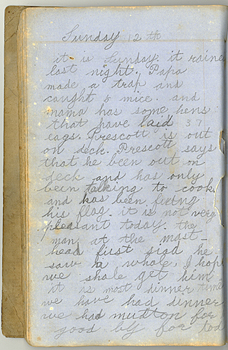 Sunday 12th
it is Sunday. it rained
last night. Papa
made a trap and
caught 6 mice. and
mama has some hens
that have laid 37
eags. Prescott is out
on deck. Prescott says
that he been out on
deck and has only
been talking to cook
and has been fieting
his flag. it is not very
pleasant today. the
man at the mast
head first siad he
saw a whale. I hope
we shale get him
it is most dinner time
we have had dinner
we had mutton for
good by for tod